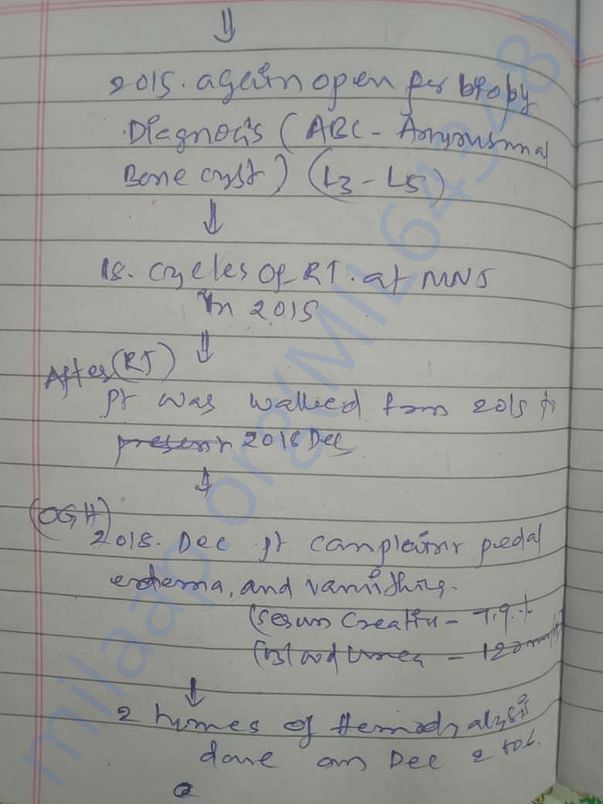 2015. again open for biopby
Diagnosis (ABC - Anyrusmnal
Bone cyst) (L3-L5)
18. cycles of RT. at MNJ
in 2015
After (RT)
Pt was walked from 2015 to
present 2018 Dec
(OGH)
2018. Dec pt complaint pedal
edema, and vamithing.
(Serum Creatin - 7.9.
(Blood Urea - 120
2 times of Hemodialysis
done on Dec
milaap.org(MIL64348)